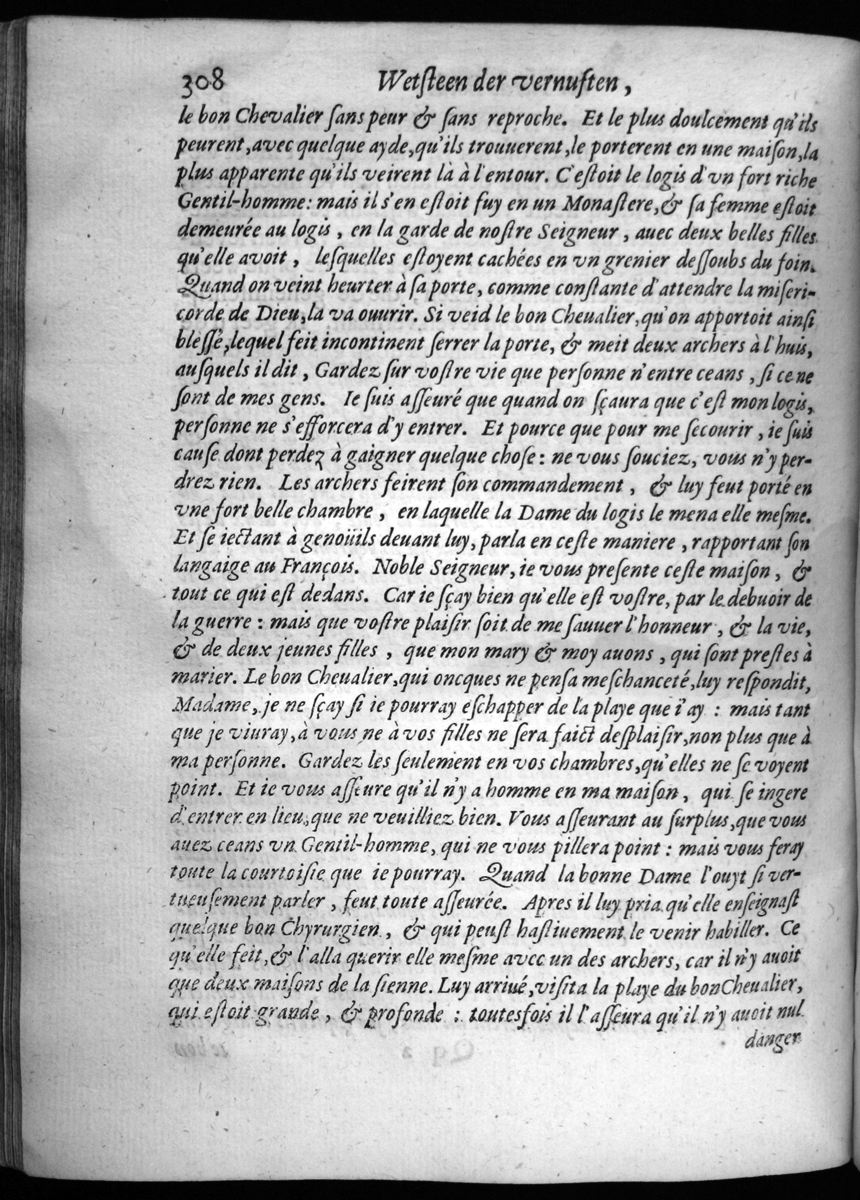 308 Wetſteen der vernuften,
le bon Chevalier ſans peur & ſans reproche. Et le plus doulcement qu'ils
peurent, avec quelque ayde, qu'ils trouuerent, le porterent en une maiſon, la
plus apparente qu'ils veirent là à l'entour. C'eſtoit le logis d'vn fort riche
Gentil-homme: mais il s'en eſtoit fuy en un Monaſtere, & ſa femme eſtoit
demeurée au logis, en la garde de noſtre Seigneur, auec deux belles filles
qu'elle avoit, leſquelles eſtoyent cachées en vn grenier deſſoubs du foin.
Quand on veint heurter à ſa porte, comme conſtante d'attendre la miſeri-
corde de Dieu, la va ouurir. Si veid le bon Cheualier, qu'on apportoit ainſi
bleſſé, lequel feit incontinent ſerrer la porte, & meit deux archers à l'huis,
auſquels il dit, Gardez ſur voſtre vie que perſonne n'entre ceans, ſi ce ne
ſont de mes gens. Ie ſuis aſſeuré que quand on ſçaura que c'eſt mon logis,
perſonne ne s'efforcera d'y entrer. Et pource que pour me ſecourir, ie ſuis
cauſe dont perdez à gaigner quelque choſe: ne vous ſouciez, vous n'y per-
drez rien. Les archers feirent ſon commandement, & luy feut porté en
vne fort belle chambre, en laquelle la Dame du logis le mena elle meſme.
Et ſe iectant à genoüils deuant luy, parla en ceſte maniere, rapportant ſon
langaige au François. Noble Seigneur, ie vous preſente ceſte maiſon, &
tout ce qui eſt dedans. Car ie ſçay bien qu'elle eſt voſtre, par le debuoir de
la guerre: mais que voſtre plaiſir ſoit de me ſauuer l'honneur, & la vie,
& de deux jeunes filles, que mon mary & moy auons, qui ſont preſtes à
marier. Le bon Cheualier, qui oncques ne penſa meſchanceté, luy reſpondit,
Madame, je ne ſçay ſi ie pourray eſchapper de la playe que i'ay: mais tant
que je viuray, à vous ne à vos filles ne ſera faict deſplaiſir, non plus que à
ma perſonne. Gardez les ſeulement en vos chambres, qu'elles ne ſe voyent
point. Et ie vous aſſeure qu'il n'y a homme en ma maiſon, qui ſe ingere
d'entrer en lieu, que ne veuilliez bien. Vous aſſeurant au ſurplus, que vous
auez ceans vn Gentil-homme, qui ne vous pillera point: mais vous feray
toute la courtoiſie que ie pourray. Quand la bonne Dame l'ouyt ſi ver-
tueuſement parler, feut toute aſſeurée. Apres il luy pria qu'elle enſeignaſt
quelque bon Chyrurgien, & qui peuſt haſtiuement le venir habiller. Ce
qu'elle feit, & l'alla querir elle meſme avec un des archers, car il n'y auoit
que deux maiſons de la ſienne. Luy arriué, viſita la playe du bon Cheualier,
qui eſtoit grande, & profonde: toutesfois il l'aſſeura qu'il n'y auoit nul
danger